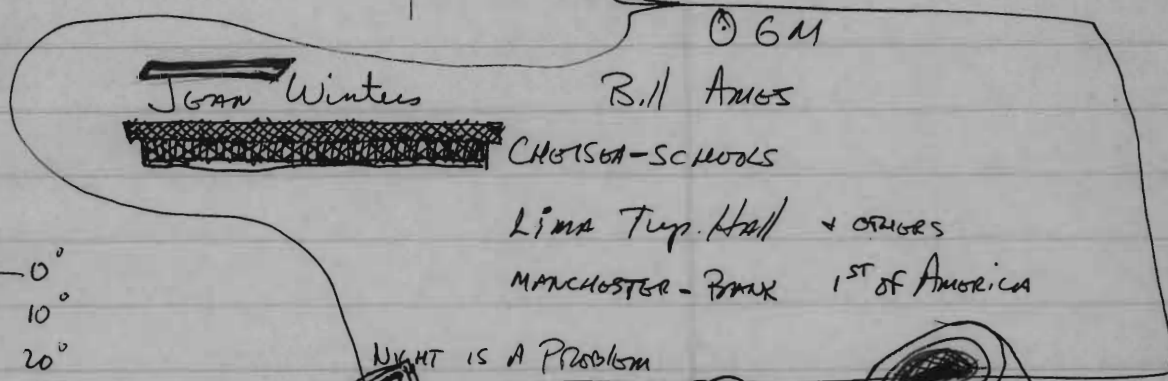 GM
JEAN Winters Bill AMES
CHELSEA-SCHOOLS
LIMA Twp. Hall + OTHERS
MANCHESTER - BANK 1ST OF AMERICA
0°
10°
20° NIGHT IS A PROBLEM